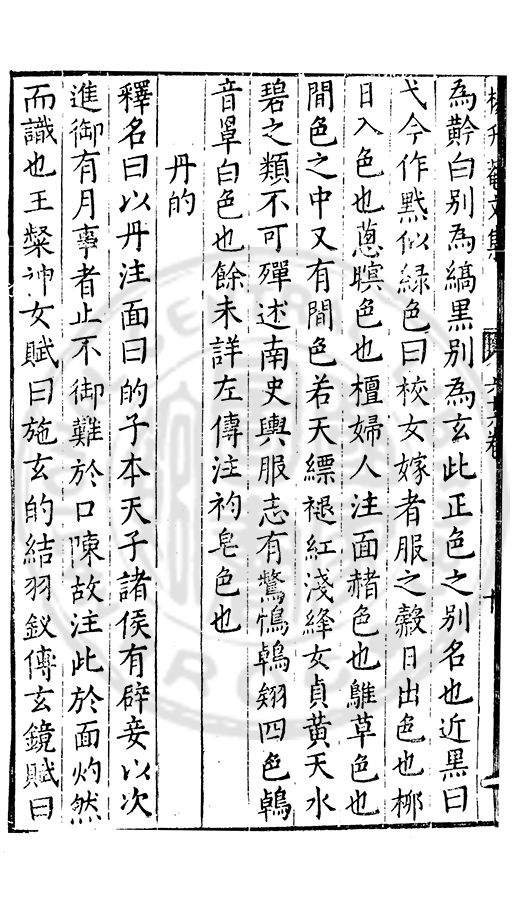 為黅白别為縞黑别為玄此正色之别名也近黑曰
弋今作黓似緑色曰校女嫁者服之𧹞日出色也栁
日入色也蔥瞑色也檀婦人注面赭色也騅草色也
間色之中又有間色若天縹褪紅淺絳女貞黄天水
碧之類不可殫述南史輿服志有鷩鵁鶾翔四色鶾
音罩白色也餘未詳左傳注袀皂色也
丹的
釋名曰以丹注面曰的子本天子諸侯有辟妾以次
進御有月事者止不御難於口陳故注此於面灼然
而識也王粲神女賦曰施玄的結羽釵傅玄鏡賦曰
楊升菴文集 六十六卷 十